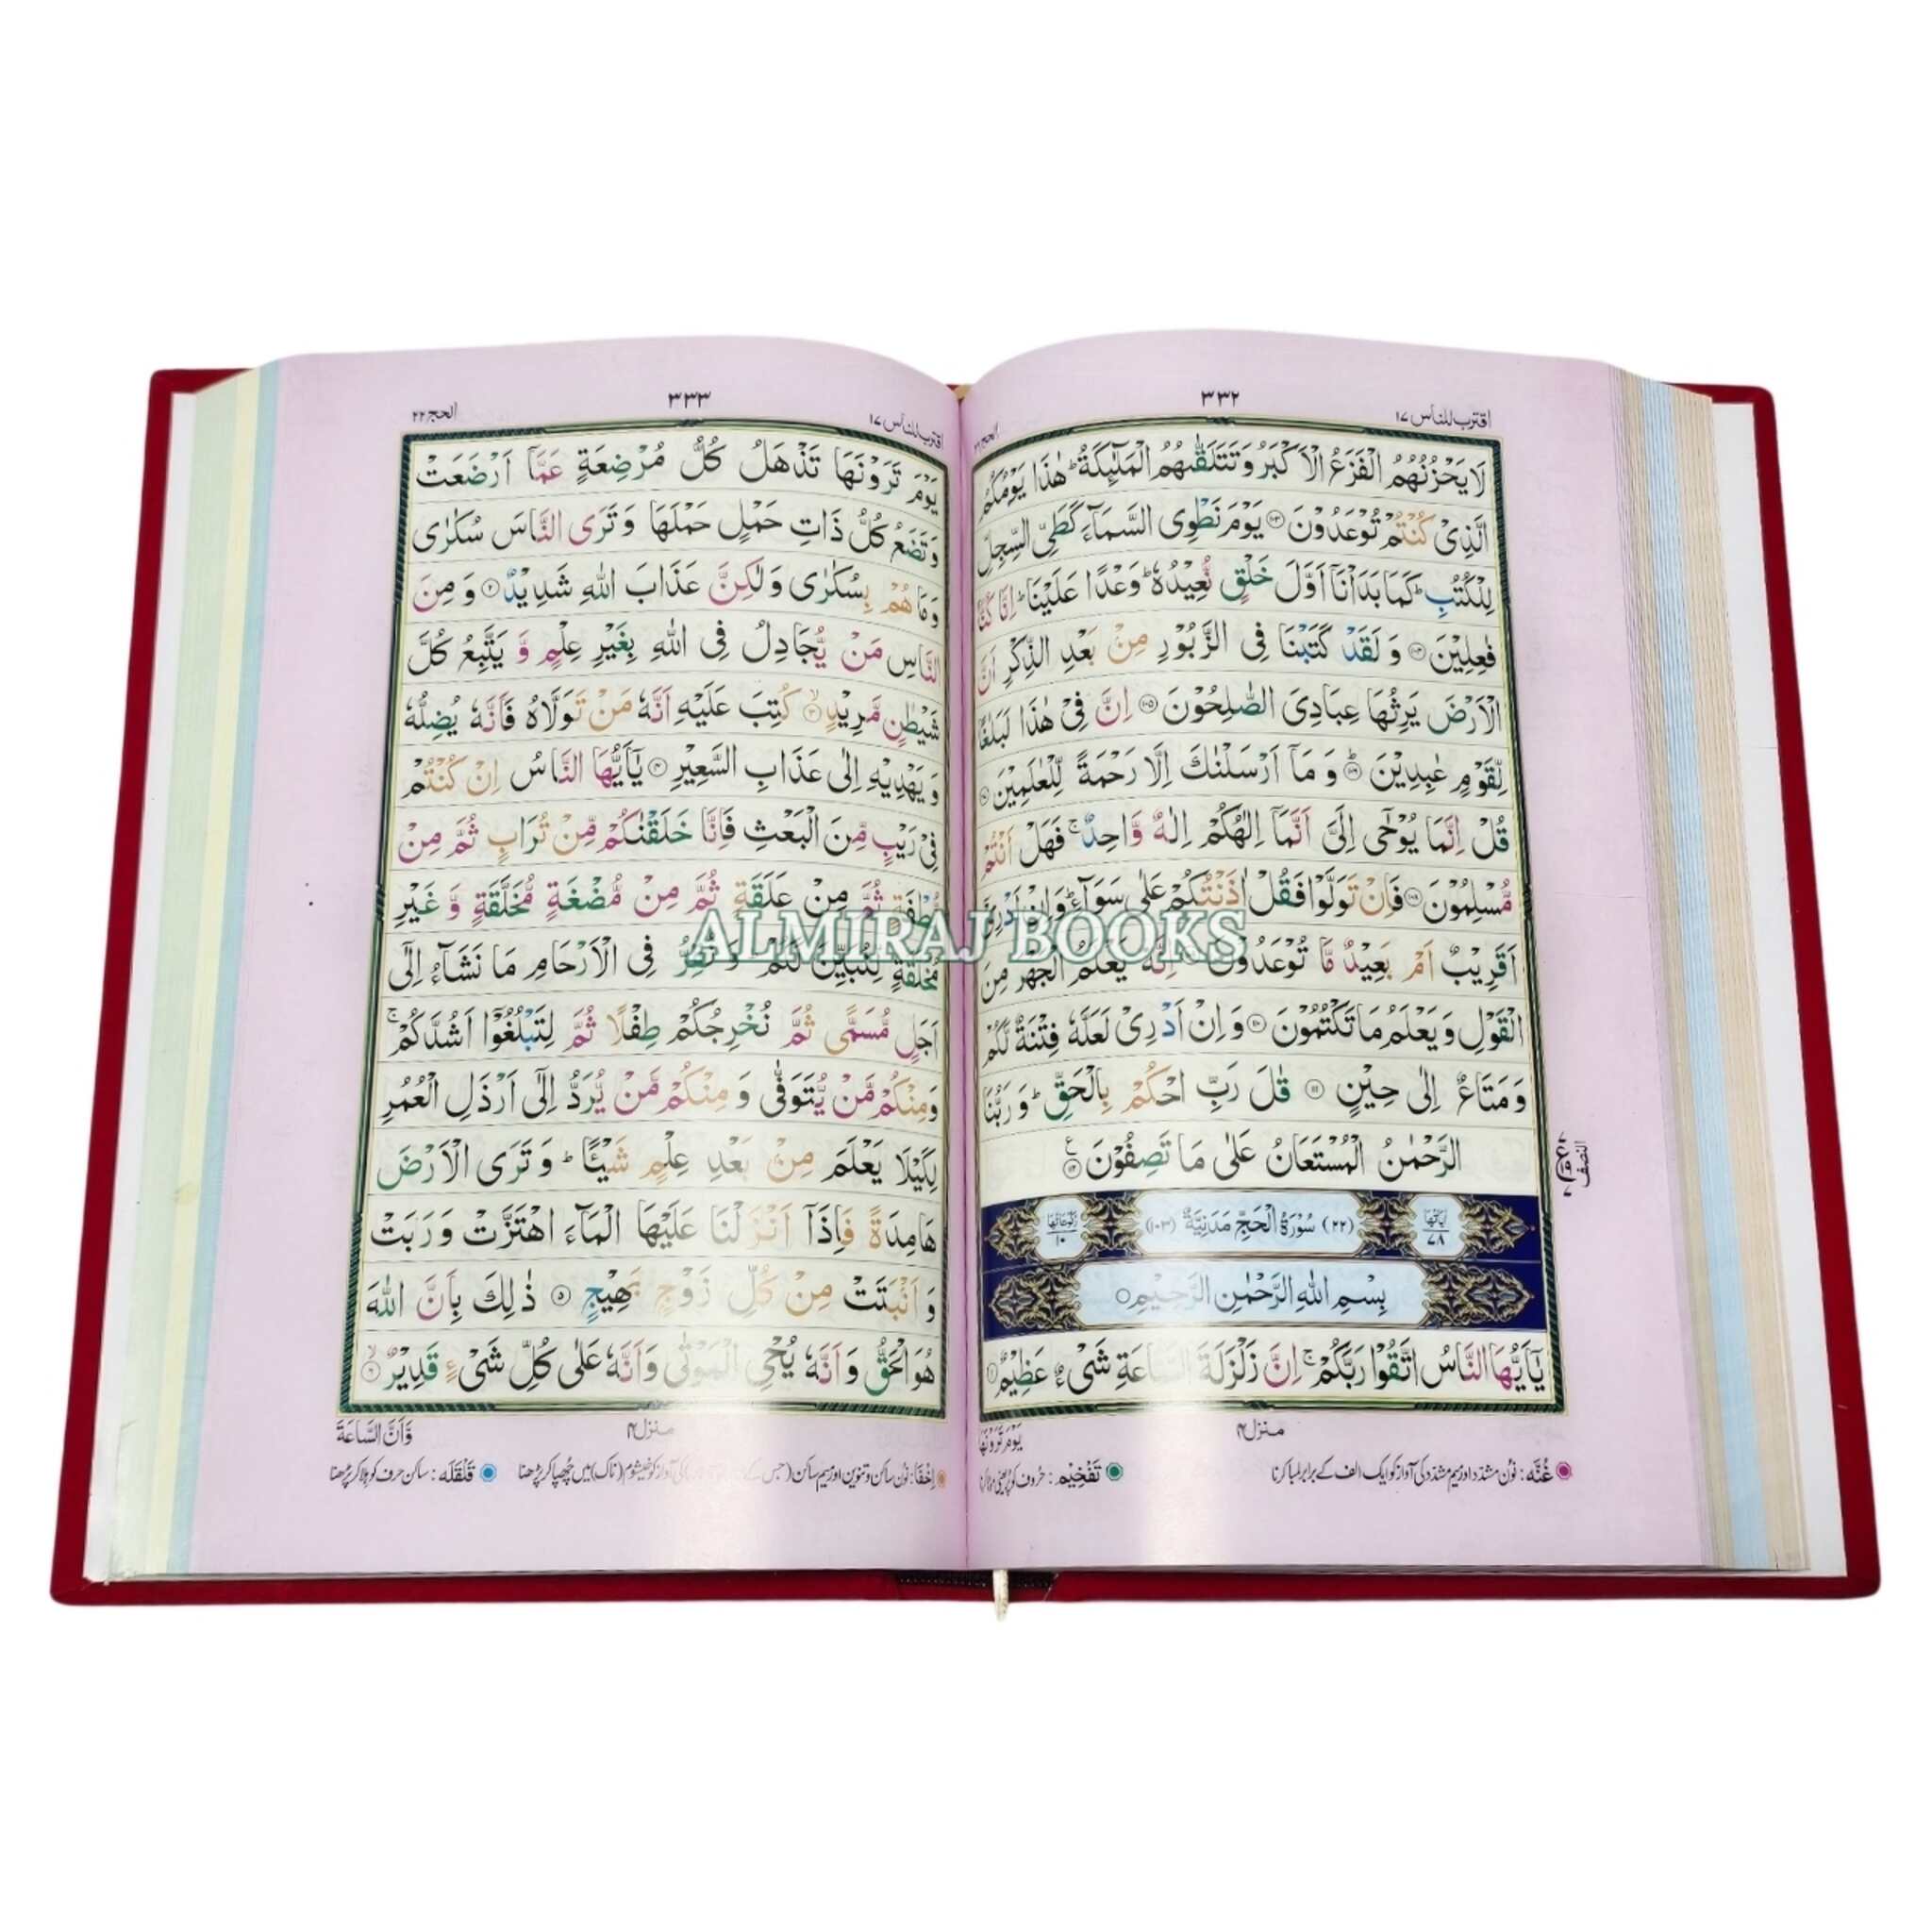 اقترب للناس ١٧
٣٣٢
الحج ٢٢
لَا يَحْزُنُهُمُ الْفَزَعُ الْاَكْبَرُ وَتَتَلَقّٰىهُمُ الْمَلٰٓئِكَةُ ؕ هٰذَا يَوْمُكُمُ
الَّذِىْ كُنْتُمْ تُوْعَدُوْنَ ۝۱۰۳ يَوْمَ نَطْوِى السَّمَآءَ كَطَىِّ السِّجِلِّ
لِلْكُتُبِ ؕ كَمَا بَدَاْنَاۤ اَوَّلَ خَلْقٍ نُّعِيْدُهٗ ؕ وَعْدًا عَلَيْنَا ؕ اِنَّا كُنَّا
فٰعِلِيْنَ ۝۱۰۴ وَ لَقَدْ كَتَبْنَا فِى الزَّبُوْرِ مِنْۢ بَعْدِ الذِّكْرِ اَنَّ
الْاَرْضَ يَرِثُهَا عِبَادِىَ الصّٰلِحُوْنَ ۝۱۰۵ اِنَّ فِىْ هٰذَا لَبَلٰغًا
لِّقَوْمٍ عٰبِدِيْنَ ۝۱۰۶ؕ وَ مَاۤ اَرْسَلْنٰكَ اِلَّا رَحْمَةً لِّلْعٰلَمِيْنَ ۝۱۰۷
قُلْ اِنَّمَا يُوْحٰۤى اِلَىَّ اَنَّمَاۤ اِلٰهُكُمْ اِلٰهٌ وَّاحِدٌ ۚ فَهَلْ اَنْتُمْ
مُّسْلِمُوْنَ ۝۱۰۸ فَاِنْ تَوَلَّوْا فَقُلْ اٰذَنْتُكُمْ عَلٰى سَوَآءٍ ؕ وَ اِنْ اَدْرِىْۤ
اَقَرِيْبٌ اَمْ بَعِيْدٌ مَّا تُوْعَدُوْنَ ۝۱۰۹ اِنَّهٗ يَعْلَمُ الْجَهْرَ مِنَ
الْقَوْلِ وَ يَعْلَمُ مَا تَكْتُمُوْنَ ۝۱۱۰ وَ اِنْ اَدْرِىْ لَعَلَّهٗ فِتْنَةٌ لَّكُمْ
وَ مَتَاعٌ اِلٰى حِيْنٍ ۝۱۱۱ قٰلَ رَبِّ احْكُمْ بِالْحَقِّ ؕ وَ رَبُّنَا
الرَّحْمٰنُ الْمُسْتَعَانُ عَلٰى مَا تَصِفُوْنَ ۝۱۱۲
النصف
اٰيَاتُهَا ٧٨ (٢٢) سُوْرَةُ الْحَجِّ مَدَنِيَّةٌ (١٠٣) رُكُوْعَاتُهَا ١٠
بِسْمِ اللّٰهِ الرَّحْمٰنِ الرَّحِيْمِ
يٰۤاَيُّهَا النَّاسُ اتَّقُوْا رَبَّكُمْ ۚ اِنَّ زَلْزَلَةَ السَّاعَةِ شَىْءٌ عَظِيْمٌ ۝۱
منزل ٤
يَوْمَ تَرَوْنَهَا
غُنَّه: نون مشدّد اور میم مشدّد کی آواز کو ایک الف کے برابر لمبا کرنا
تَفْخِيْم: حروف کو پُر یعنی موٹا کرنا
اقترب للناس ١٧
٣٣٣
الحج ٢٢
يَوْمَ تَرَوْنَهَا تَذْهَلُ كُلُّ مُرْضِعَةٍ عَمَّاۤ اَرْضَعَتْ
وَ تَضَعُ كُلُّ ذَاتِ حَمْلٍ حَمْلَهَا وَ تَرَى النَّاسَ سُكٰرٰى
وَ مَا هُمْ بِسُكٰرٰى وَ لٰكِنَّ عَذَابَ اللّٰهِ شَدِيْدٌ ۝۲ وَ مِنَ
النَّاسِ مَنْ يُّجَادِلُ فِى اللّٰهِ بِغَيْرِ عِلْمٍ وَّ يَتَّبِعُ كُلَّ
شَيْطٰنٍ مَّرِيْدٍ ۝۳ۙ كُتِبَ عَلَيْهِ اَنَّهٗ مَنْ تَوَلَّاهُ فَاَنَّهٗ يُضِلُّهٗ
وَ يَهْدِيْهِ اِلٰى عَذَابِ السَّعِيْرِ ۝۴ يٰۤاَيُّهَا النَّاسُ اِنْ كُنْتُمْ
فِىْ رَيْبٍ مِّنَ الْبَعْثِ فَاِنَّا خَلَقْنٰكُمْ مِّنْ تُرَابٍ ثُمَّ مِنْ
نُّطْفَةٍ ثُمَّ مِنْ عَلَقَةٍ ثُمَّ مِنْ مُّضْغَةٍ مُّخَلَّقَةٍ وَّ غَيْرِ
مُخَلَّقَةٍ لِّنُبَيِّنَ لَكُمْ ؕ وَ نُقِرُّ فِى الْاَرْحَامِ مَا نَشَآءُ اِلٰٓى
اَجَلٍ مُّسَمًّى ثُمَّ نُخْرِجُكُمْ طِفْلًا ثُمَّ لِتَبْلُغُوْۤا اَشُدَّكُمْ ۚ
وَ مِنْكُمْ مَّنْ يُّتَوَفّٰى وَ مِنْكُمْ مَّنْ يُّرَدُّ اِلٰٓى اَرْذَلِ الْعُمُرِ
لِكَيْلَا يَعْلَمَ مِنْۢ بَعْدِ عِلْمٍ شَيْـًٔا ؕ وَ تَرَى الْاَرْضَ
هَامِدَةً فَاِذَاۤ اَنْزَلْنَا عَلَيْهَا الْمَآءَ اهْتَزَّتْ وَ رَبَتْ
وَ اَنْۢبَتَتْ مِنْ كُلِّ زَوْجٍۭ بَهِيْجٍ ۝۵ ذٰلِكَ بِاَنَّ اللّٰهَ
هُوَ الْحَقُّ وَ اَنَّهٗ يُحْىِ الْمَوْتٰى وَ اَنَّهٗ عَلٰى كُلِّ شَىْءٍ قَدِيْرٌ ۝۶ۙ
منزل ٤
وَّاَنَّ السَّاعَةَ
اِخْفَا: نون ساکن و تنوین اور میم ساکن کی آواز کو خیشوم (ناک) میں چُھپا کر پڑھنا
قَلْقَلَه: ساکن حرف کو ہلا کر پڑھنا
ALMIRAJ BOOKS